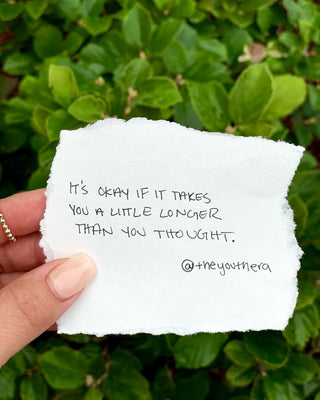 IT'S OKAY IF IT TAKES
YOU A LITTLE LONGER
THAN YOU THOUGHT.
@theyouthera